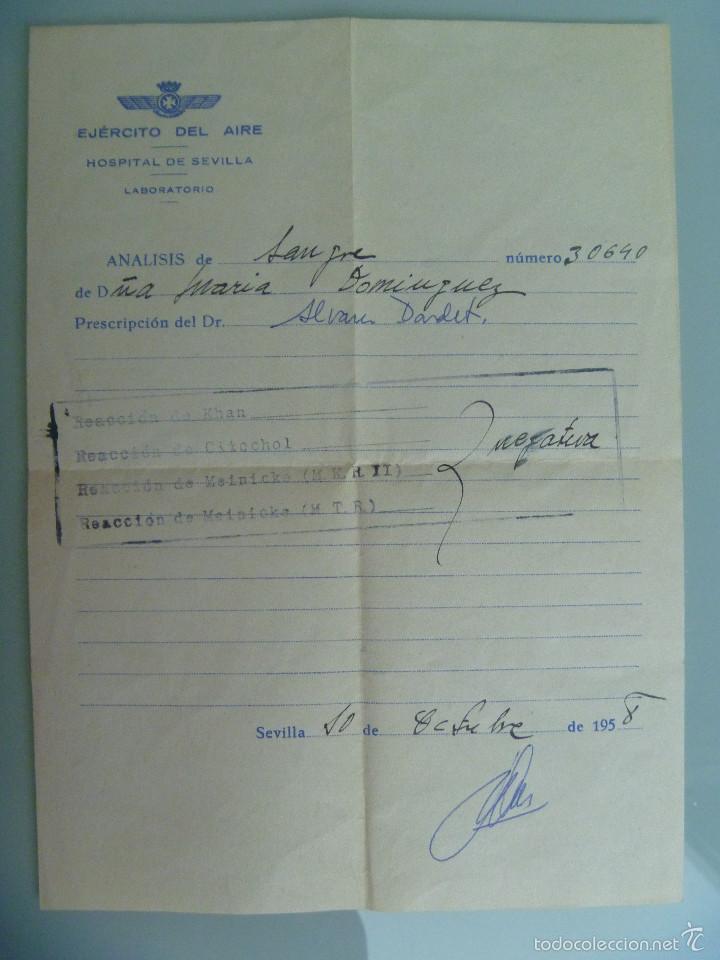 EJÉRCITO DEL AIRE
HOSPITAL DE SEVILLA
LABORATORIO
ANALISIS de Sangre número 30640
de Dña Maria Dominguez
Prescripción del Dr. Alvarez Dardet.
Reacción de Khan
Reacción de Citochol
Reacción de Meinicke (M.K.R II)
Reacción de Meinicke (M.T.R.)
negativa
Sevilla 10 de Octubre de 1958
todocoleccion.net